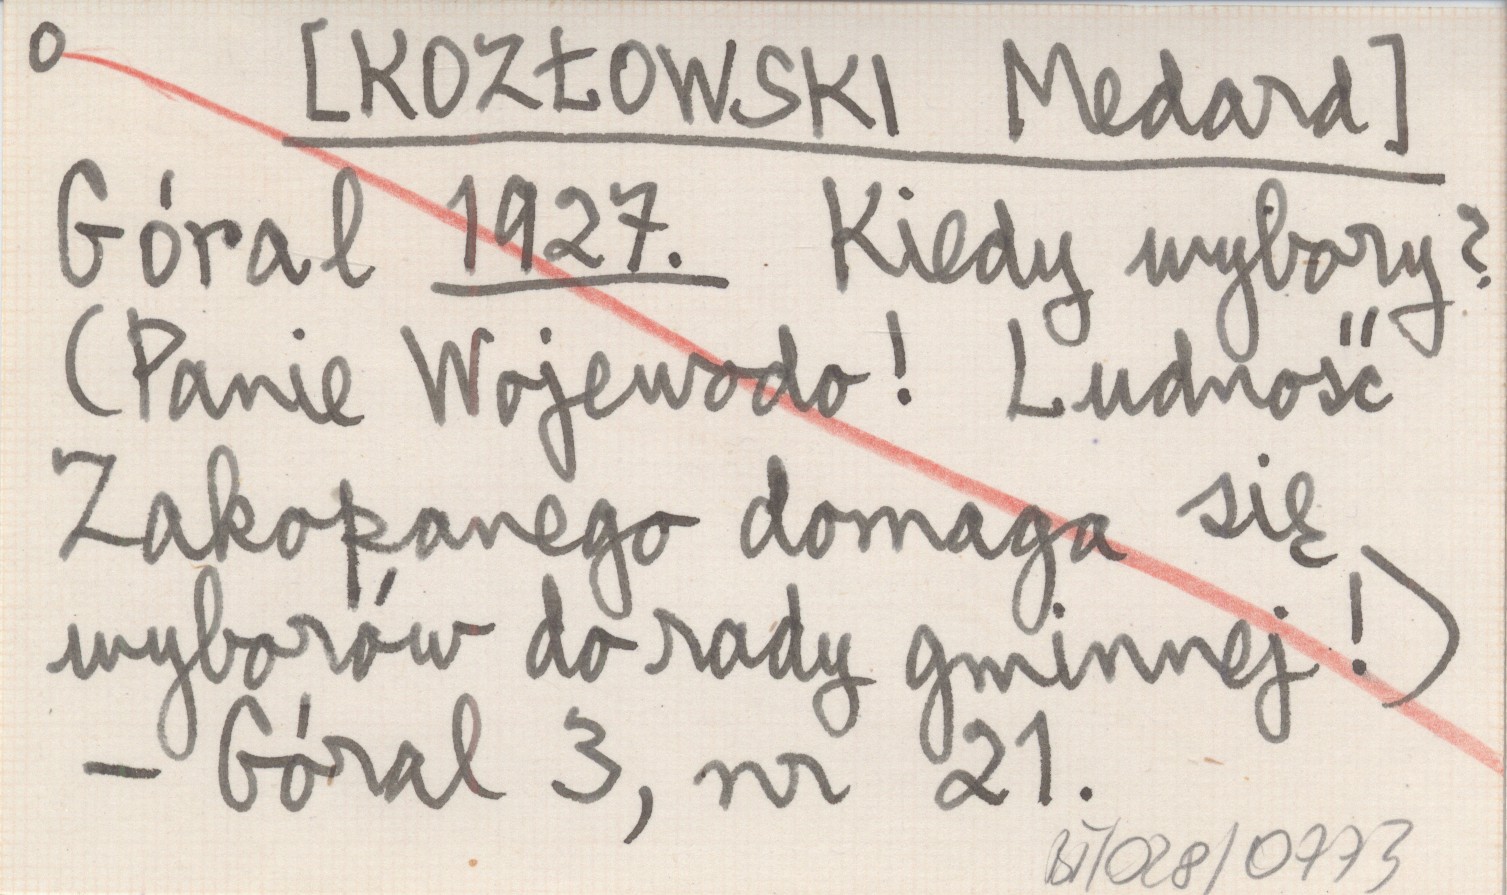 o [KOZŁOWSKI Medard]
Góral 1927. Kiedy wybory?
(Panie Wojewodo! Ludność
Zakopanego domaga się
wyborów do rady gminnej!)
– Góral 3, nr 21.
/028/0773